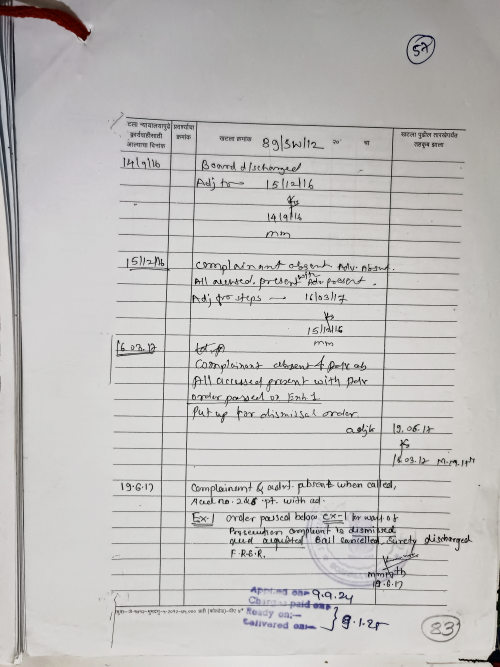 57
खटला क्रमांक 89/SW/12 २० चा
14/9/16 Board discharged
Adj to — 15/12/16
14/9/16
mm
15/12/16 Complainant absent Adv. Absent.
All accused present with Adv present.
Adj for steps — 16/03/17
15/12/16
mm
16.03.17
Complainant absent & Adv ab
All accused present with Adv
order passed on Exh 1
Put up for dismissal order
adj to 19.06.17
16.03.17 M.M.17th
19.6.17 Complainant & advt. absent when called,
Acud no. 2&5 pt. with ad.
Ex-1 order passed below ex-1 for want of
Prosecution complaint is dismissed
acud acquitted Bail cancelled, surety discharged
F.R.B.R.
19.6.17
Applied on:- 9.9.24
Charges paid on:-
Ready on:-
Delivered on:- 9.1.25
83